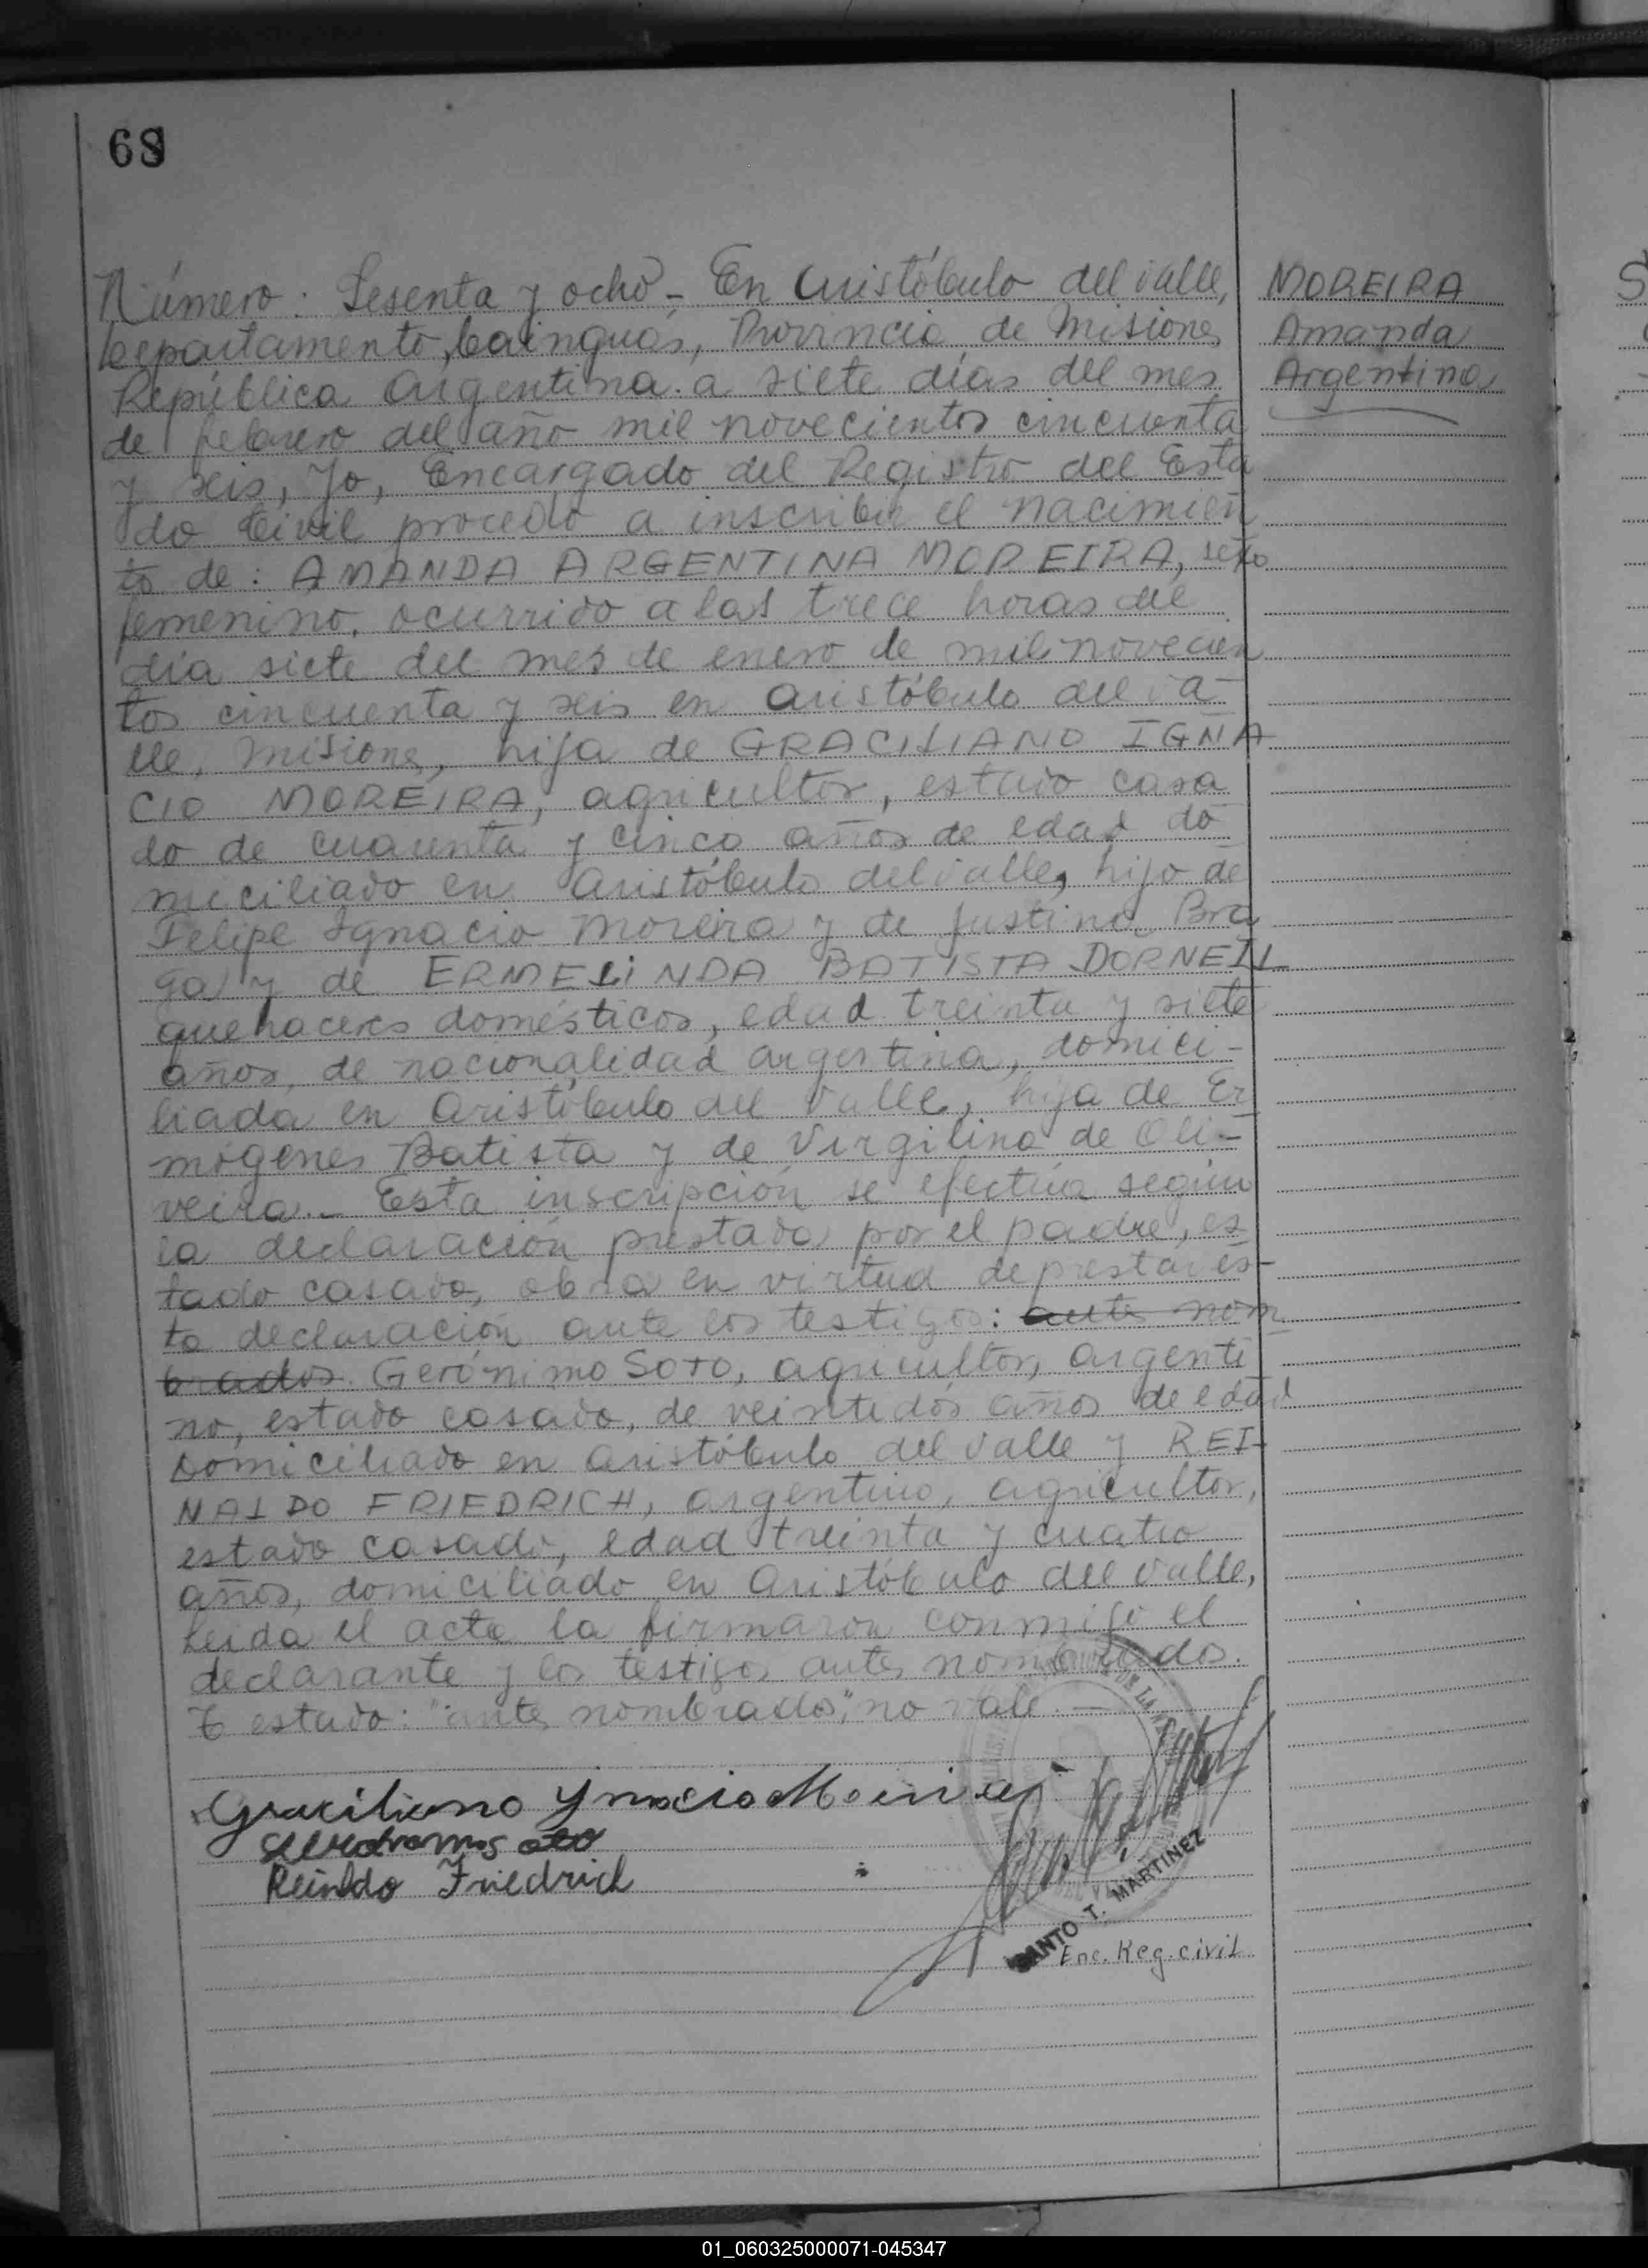 68
Número: Sesenta y ocho - En Aristóbulo del Valle,
Departamento, Cainguás, Provincia de Misiones
República Argentina. a siete días del mes
de febrero del año mil novecientos cincuenta
y seis, Yo, Encargado del Registro del Esta
do Civil procedo a inscribir el nacimien
to de: AMANDA ARGENTINA MOREIRA, sexo
femenino, ocurrido a las trece horas del
día siete del mes de enero de mil novecien
tos cincuenta y seis en Aristóbulo del Va-
lle, Misiones, hija de GRACILIANO IGNA
CIO MOREIRA, agricultor, estado casa
do de cuarenta y cinco años de edad do
miciliado en Aristóbulo del Valle, hijo de
Felipe Ignacio Moreira y de Justina Bra
ga) y de ERMELiNDA BATISTA DORNELL
quehaceres domésticos, edad treinta y siete
años, de nacionalidad argentina, domici-
liada en Aristóbulo del Valle, hija de Er
mógenes Batista y de Virgilina de Oli-
veira.- Esta inscripción se efectúa según
la declaración prestada por el padre, es
tado casado, obra en virtud de prestar és-
ta declaración ante los testigos: antes nom
brados. Gerónimo Soto, agricultor, argenti
no, estado casado, de veintidós años de edad
domiciliado en Aristóbulo del Valle y REI-
NALDO FRIEDRICH, argentino, agricultor,
estado casado, edad treinta y cuatro
años, domiciliado en Aristóbulo del Valle,
Leída el acta la firmaron conmigo el
declarante y los testigos antes nombrados.
Testado: "antes nombrados", no vale. —
Graciliano Ynacio Moreira
Reinldo Friedrich
SANTO T. MARTINEZ
Enc. Reg. civil
MOREIRA
Amanda
Argentina
01_060325000071-045347